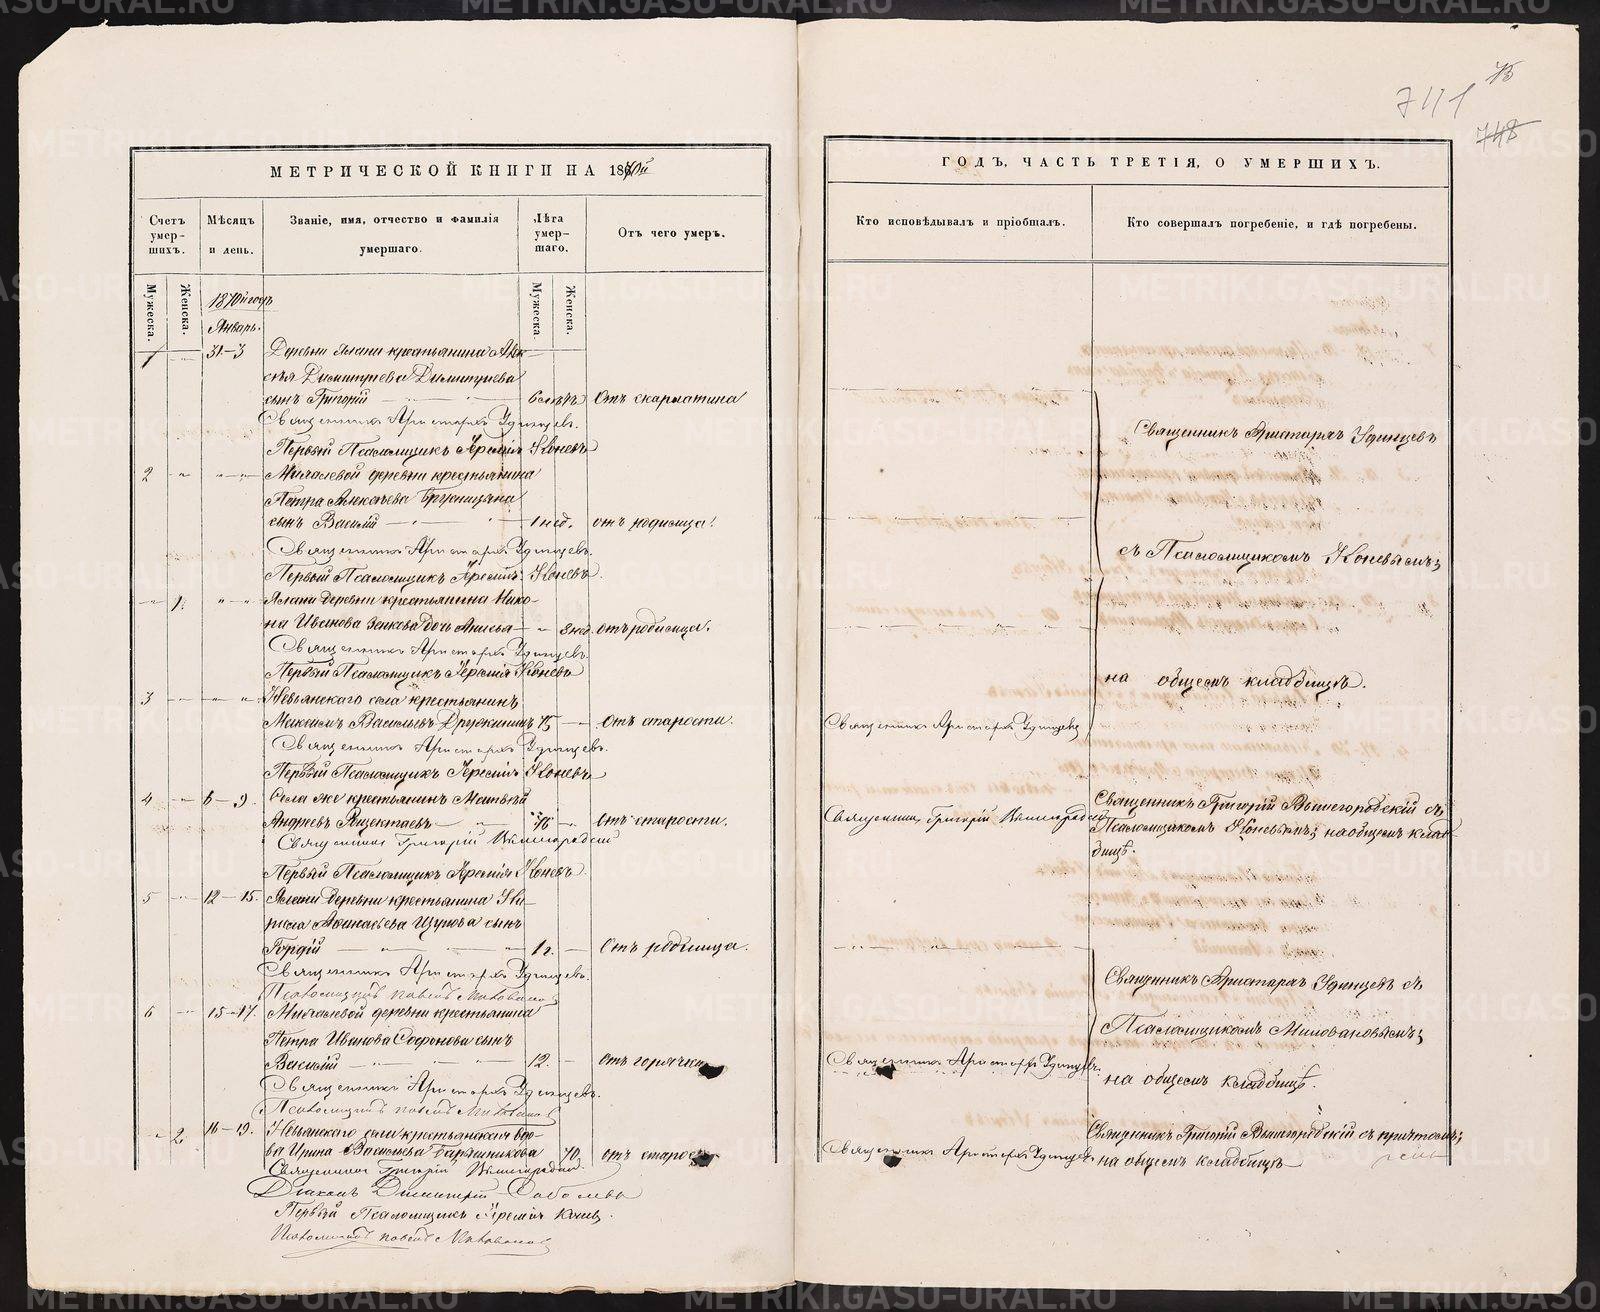 75
711
748
МЕТРИЧЕСКОЙ КНИГИ НА 1870й
ГОДЪ, ЧАСТЬ ТРЕТІЯ, О УМЕРШИХЪ.
Счетъ умер-шихъ.
Мѣсяцъ и день.
Званіе, имя, отчество и фамилія умершаго.
Лѣта умер-шаго.
Отъ чего умеръ.
Кто исповѣдывалъ и пріобщалъ.
Кто совершалъ погребеніе, и гдѣ погребены.
Мужеска.
Женска.
Мужеска.
Женска.
1870й годъ
Январь.
1 31-3 Деревни Ялани крестьянина Алек-
сѣя Димитріева Димитріева
сынъ Григорій 6 Отъ скарлатина
Священникъ Аристархъ Удинцевъ.
Первый Псаломщикъ Іеремія Коневъ
2 Милаевой деревни крестьянина
Петра Алексѣева
сынъ Василій 1 нед. отъ родимца.
Священникъ Аристархъ Удинцевъ.
Первый Псаломщикъ Іеремія Коневъ.
1. Ялани деревни крестьянина Нико-
на Иванова Зенкова дочь Анисья 3 нед. отъ родимца.
Священникъ Аристархъ Удинцевъ
Первый Псаломщикъ Іеремія Коневъ
3 Невьянскаго села крестьянинъ
Максимъ Васильевъ Дружининъ 75 Отъ старости.
Священникъ Аристархъ Удинцевъ.
Первый Псаломщикъ Іеремія Коневъ
4 6-9. Села же крестьянинъ Матвѣй
Андреевъ 76 Отъ старости.
Священникъ Григорій Вышегородскій
Первый Псаломщикъ Іеремія Коневъ.
5 12-15. Ялани деревни крестьянина Ки-
рила Аѳанасьева сынъ
Гордій 1 г. Отъ родимца.
Священникъ Аристархъ Удинцевъ.
Псаломщикъ Павелъ Миловановъ
6 15-17. Милаевой деревни крестьянина
Петра Иванова Софонова сынъ
Василій 12. Отъ горячки
Священникъ Аристархъ Удинцевъ.
Псаломщикъ Павелъ Миловановъ
2. 16-19. Невьянскаго села крестьянская вдо-
ва Ирина Васильева 70. отъ старости
Священникъ Григорій Вышегородскій
Діаконъ Димитрій Соболевъ
Первый Псаломщикъ Іеремія Коневъ.
Псаломщикъ Павелъ Миловановъ
Священникъ Аристархъ Удинцевъ
съ Псаломщикомъ Коневымъ;
на общемъ кладбищѣ.
Священникъ Аристархъ Удинцевъ
Священникъ Григорій Вышегородскій
Священникъ Григорій Вышегородскій съ
Псаломщикомъ Коневымъ; на общемъ клад-
бищѣ.
Священникъ Аристархъ Удинцевъ съ
Псаломщикомъ Миловановымъ;
Священникъ Аристархъ Удинцевъ.
на общемъ кладбищѣ.
Священникъ Аристархъ Удинцевъ
Священникъ Григорій Вышегородскій съ причтомъ;
на общемъ кладбищѣ
METRIKI.GASO-URAL.RU